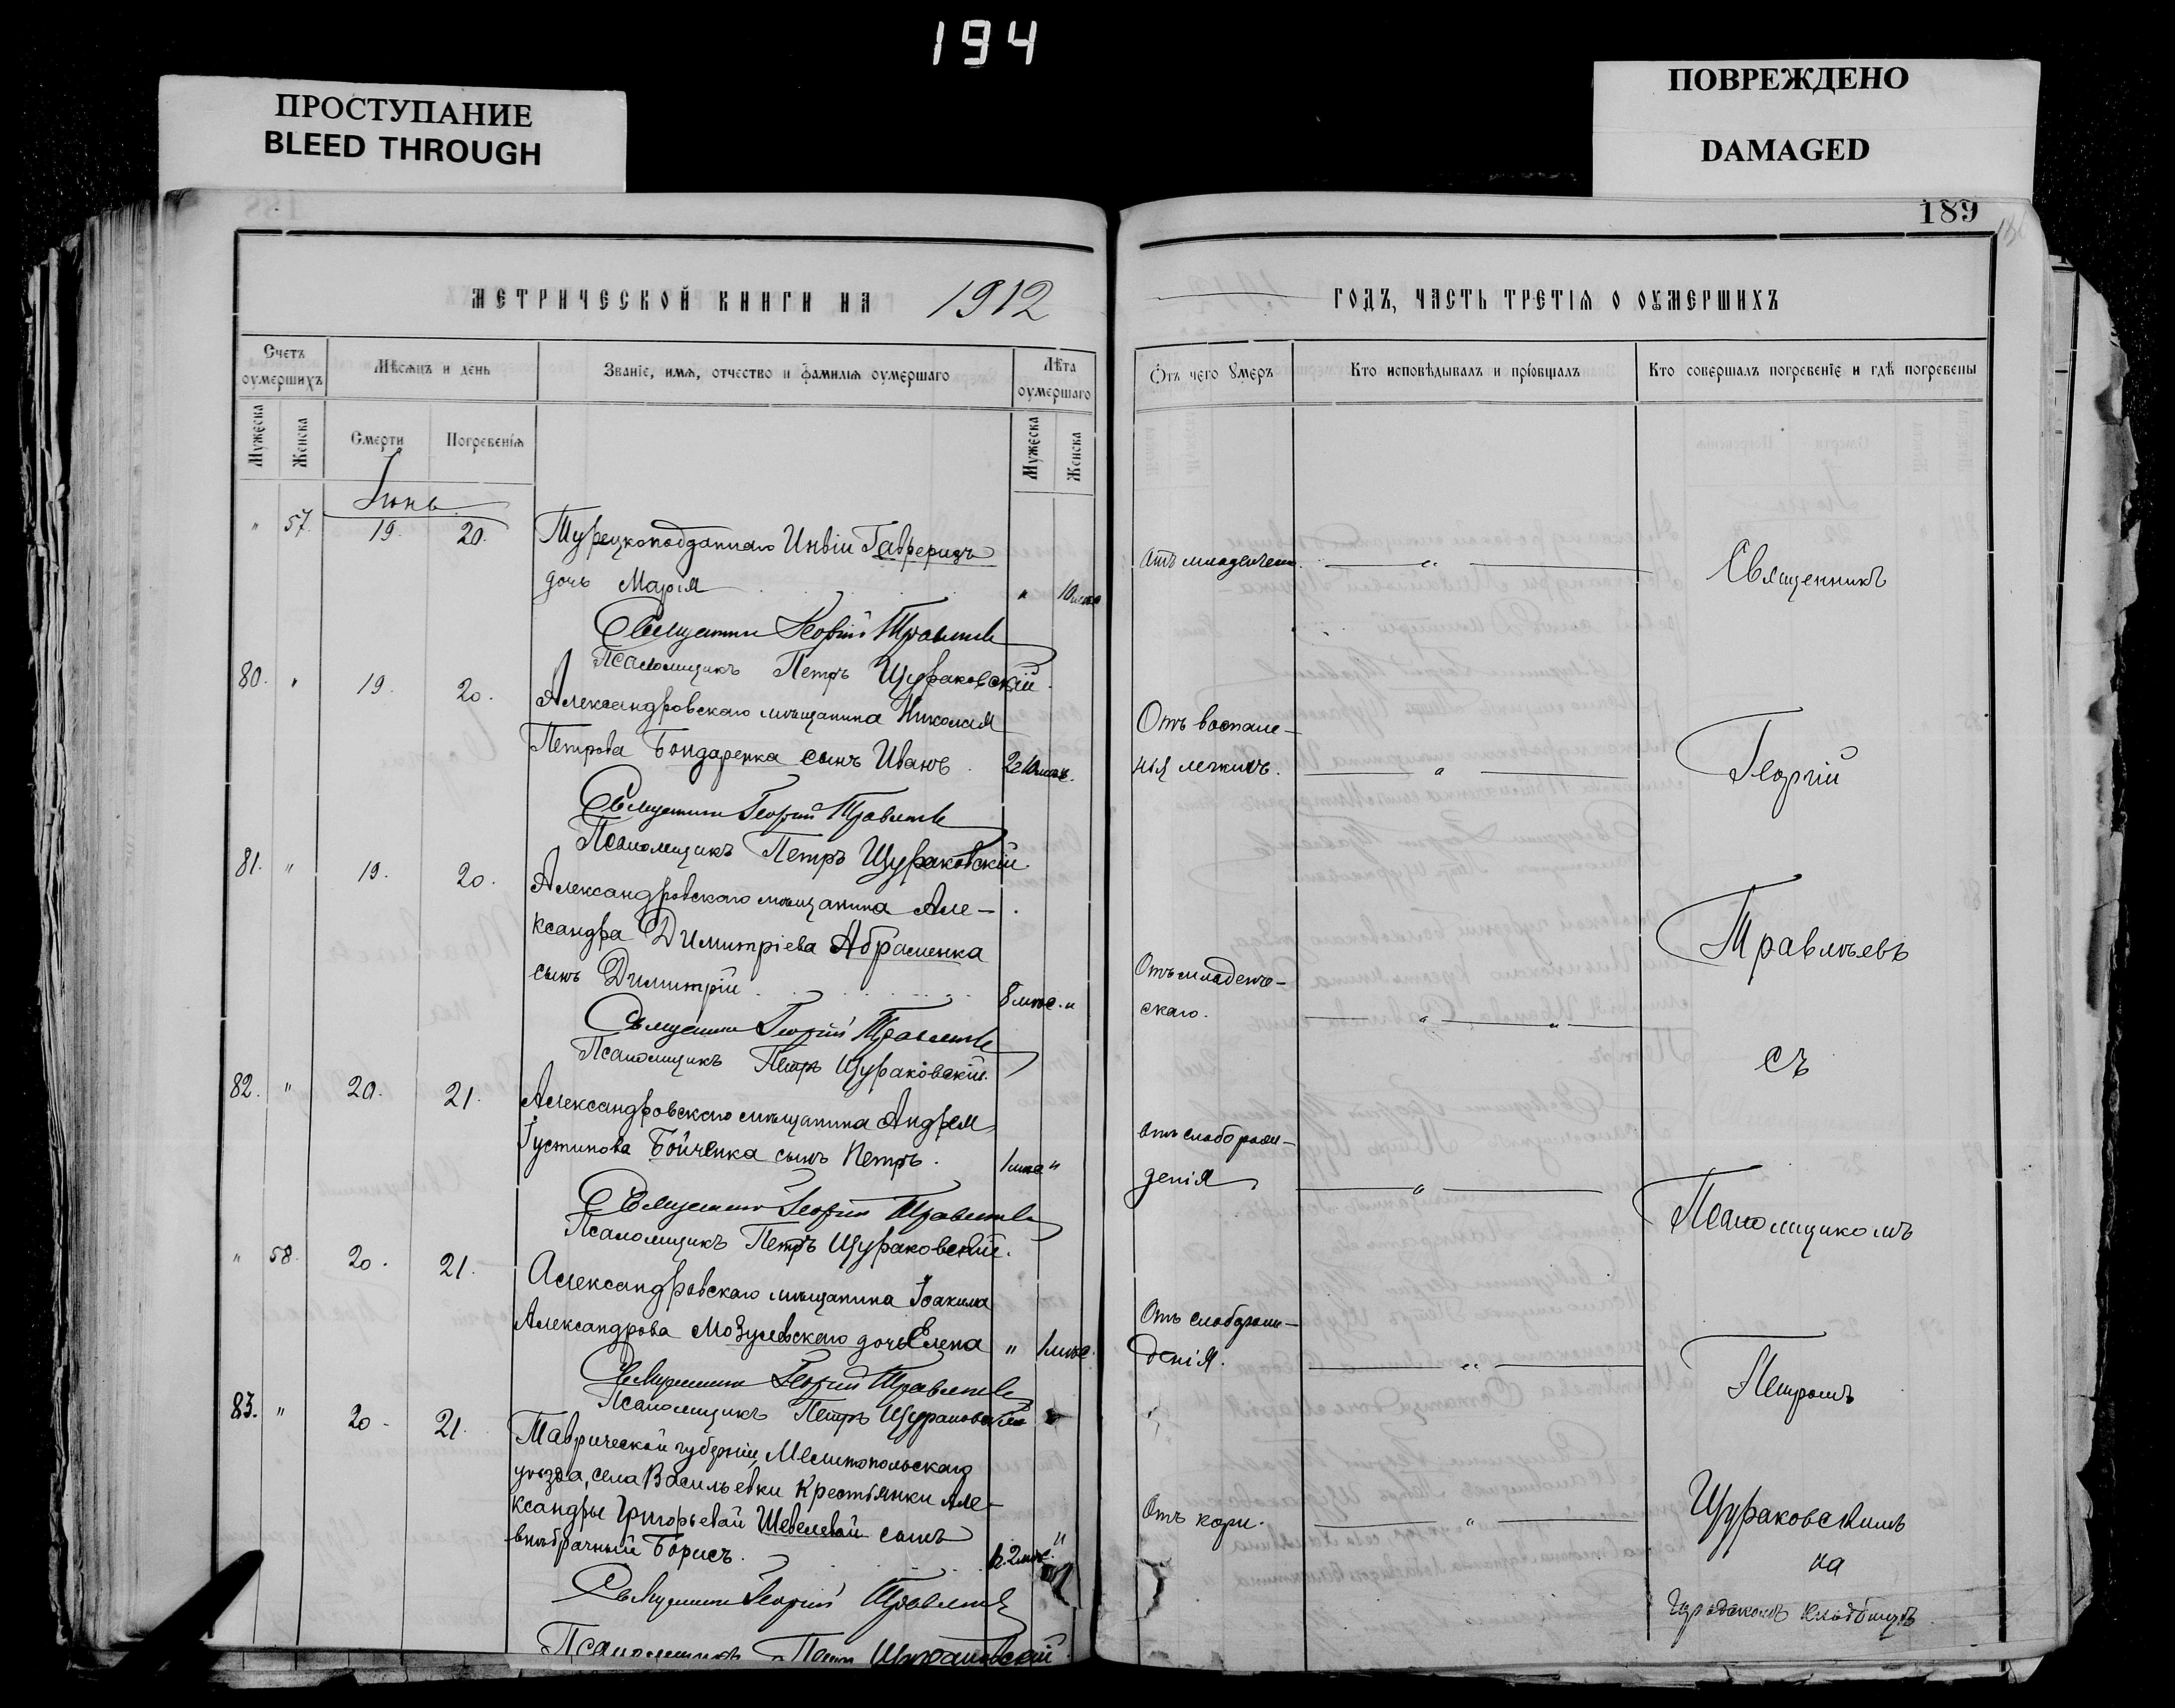 194
ПРОСТУПАНИЕ
BLEED THROUGH
ПОВРЕЖДЕНО
DAMAGED
189
МЕТРИЧЕСКОЙ КНИГИ НА 1912
ГОДЪ, ЧАСТЬ ТРЕТІЯ О ОУМЕРШИХЪ
Счетъ оумершихъ
Мѣсяцъ и день
Званіе, имя, отчество и фамилія оумершаго
Лѣта оумершаго
Отъ чего умеръ
Кто исповѣдывалъ и пріобщалъ
Кто совершалъ погребеніе и гдѣ погребены
Мужеска
Женска
Смерти
Погребенія
Мужеска
Женска
Іюнь
" 57. 19. 20. Турецкоподданнаго
дочь Марія " 10 мѣс
Священникъ Георгій Травлѣевъ
Псаломщикъ Петръ Щураковскій.
80. " 19. 20.
Александровскаго мѣщанина Николая
Петрова Бондаренка сынъ Иванъ
Священникъ Георгій Травлѣевъ
Псаломщикъ Петръ Щураковскій.
81. " 19. 20.
Александровскаго мѣщанина Але-
ксандра Димитріева Абраменка
сынъ Димитрій 8 мѣс. "
Священникъ Георгій Травлѣевъ
Псаломщикъ Петръ Щураковскій.
82. " 20. 21.
Александровскаго мѣщанина Андрея
Іустинова Бойченка сынъ Петръ. 1 мѣс "
Священникъ Георгій Травлѣевъ
Псаломщикъ Петръ Щураковскій.
" 58. 20. 21.
Александровскаго мѣщанина Іоакима
Александрова Мозулевскаго дочь Елена " 1 мѣс.
Священникъ Георгій Травлѣевъ
Псаломщикъ Петръ Щураковскій
83. " 20 21.
Таврической губерніи, Мелитопольскаго
уѣзда, села Васильевки крестьянки Але-
ксандры Григорьевой Шевелевой сынъ
внѣбрачный Борисъ. 2 мѣс. "
Священникъ Георгій Травлѣевъ
Псаломщикъ Петръ Щураковскій
Отъ воспале-
нія легкихъ.
Отъ младенче-
скаго.
Отъ слаборож-
денія
Отъ слаборож-
денія.
Отъ кори.
Священникъ
Георгій
Травлѣевъ
съ
Псаломщикомъ
Петромъ
Щураковскимъ
на
городскомъ кладбищѣ